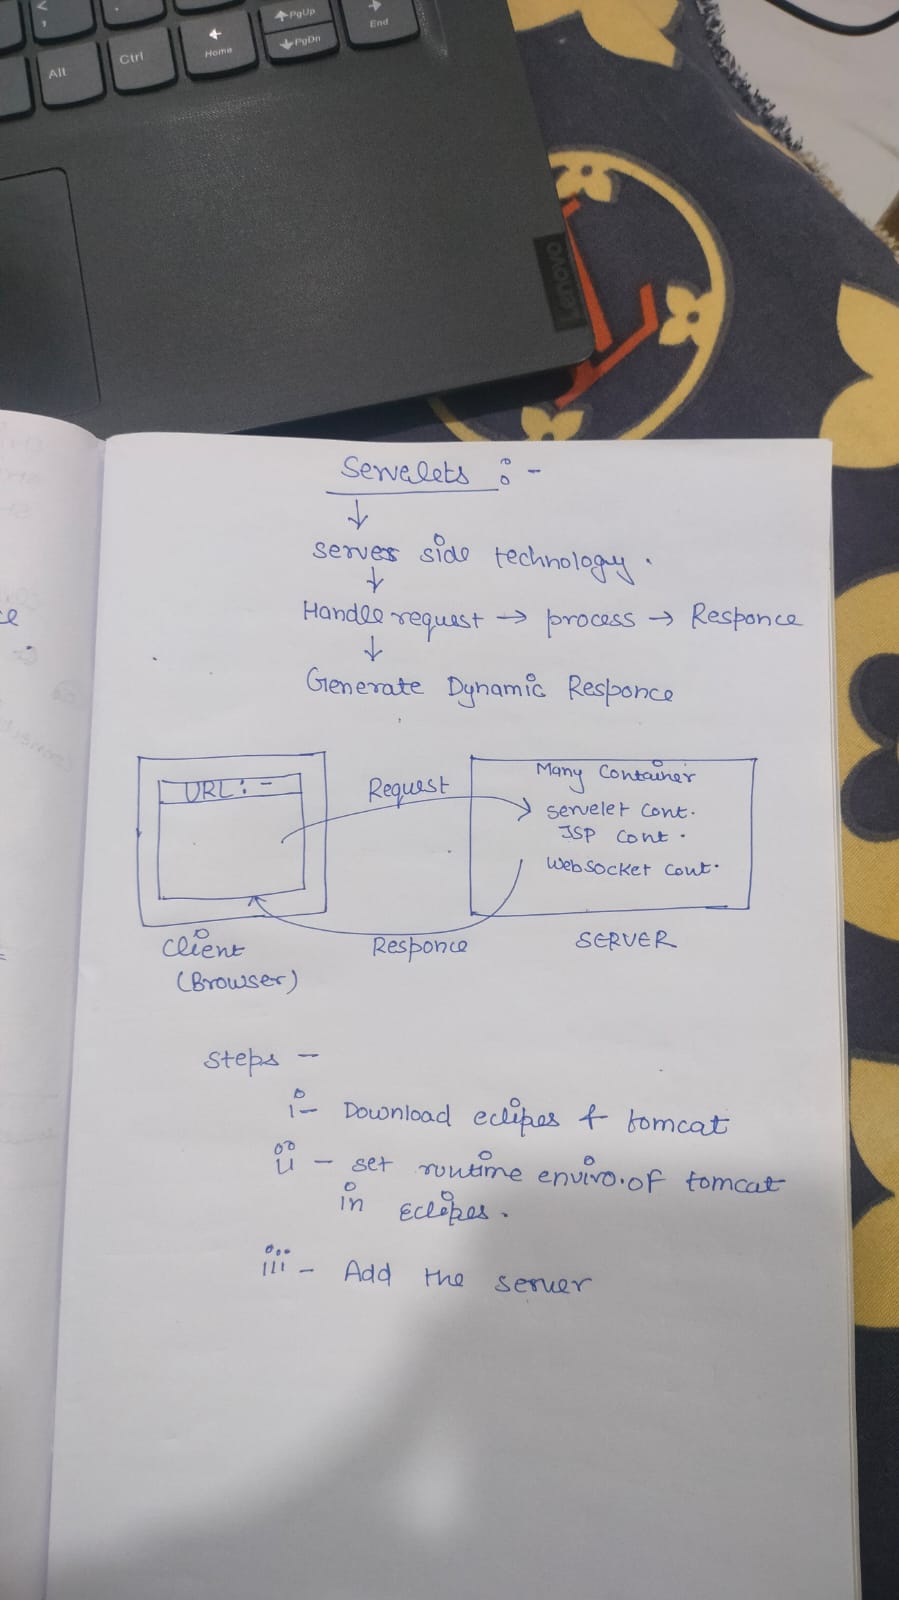 <
,
Alt
Ctrl
Home
PgUp
End
PgDn
End
Lenovo
Servelets :-
server side technology.
Handle request → process → Responce
Generate Dynamic Responce
URL: -
Request
Many Container
servelet cont.
JSP cont.
Websocket cont.
Client
(Browser)
Responce
SERVER
Steps -
i- Download eclipes & tomcat
ii - set runtime enviro. of tomcat
in Eclipes.
iii - Add the server